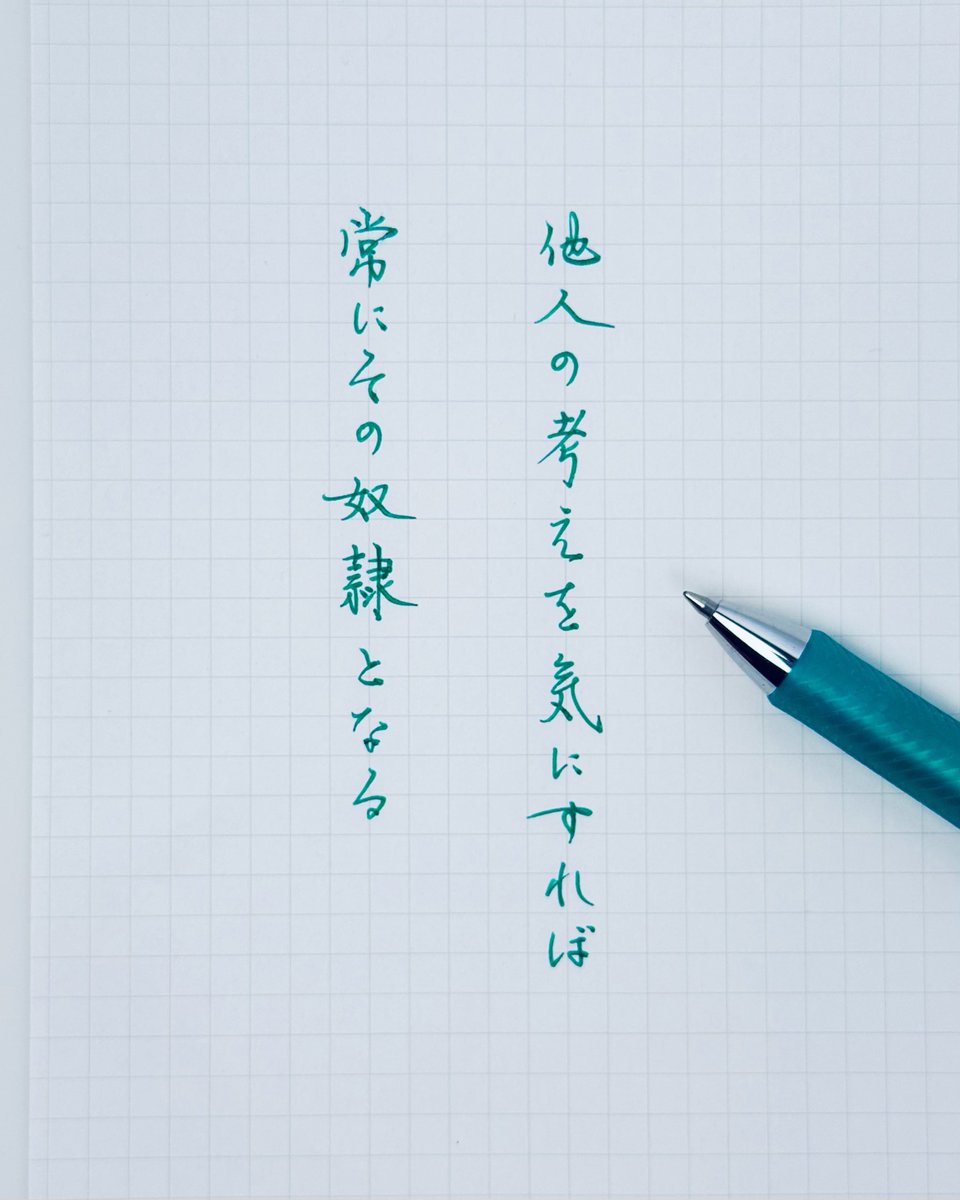 他人の考えを気にすれば
常にその奴隷となる